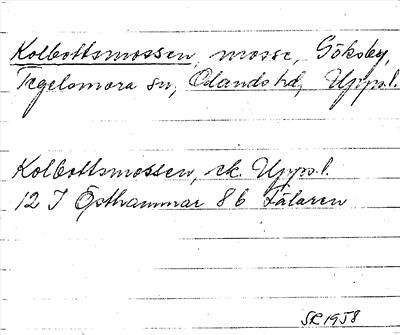 Kolbottsmossen, mosse, Göksby,
Tegelsmora sn, Olands hd, Uppl.
Kolbottsmossen, ek. Uppl.
12 I Östhammar 8 b Fälaren
SR 1958